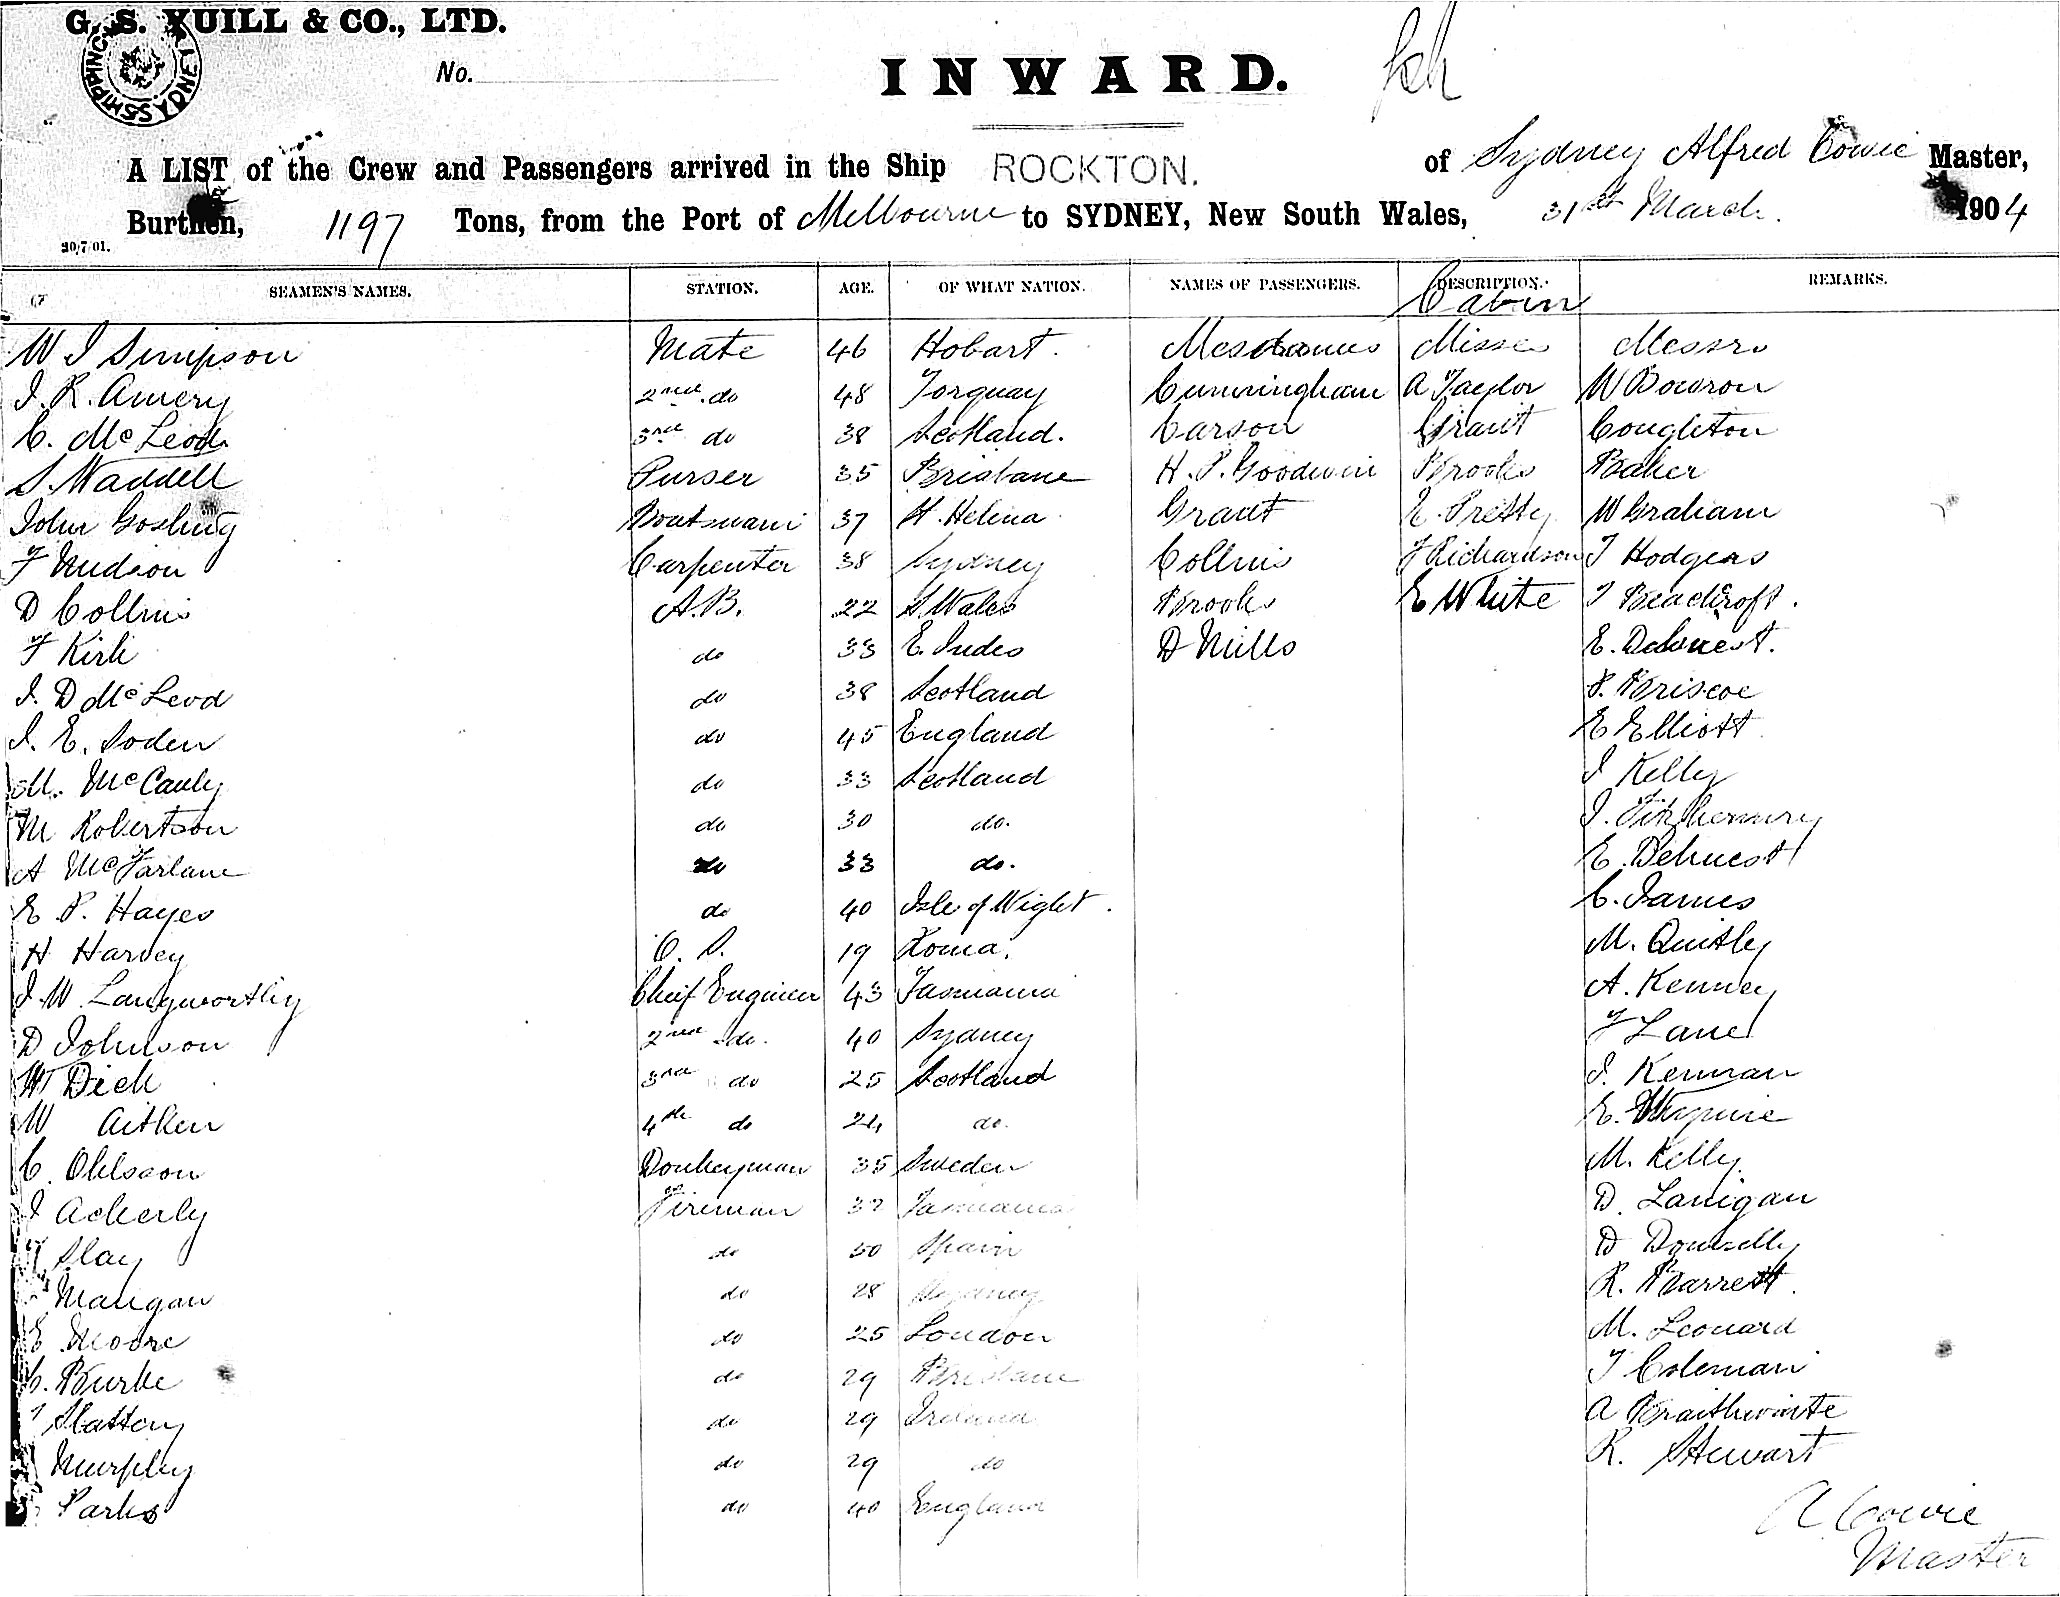 G. S. YUILL & CO., LTD.
SHIPPING SYDNEY
No.
INWARD.
A LIST of the Crew and Passengers arrived in the Ship ROCKTON. of Sydney Alfred Cowie Master,
Burthen, 1197 Tons, from the Port of Melbourne to SYDNEY, New South Wales, 31st March. 1904
20/7/01.
SEAMEN'S NAMES. STATION. AGE. OF WHAT NATION. NAMES OF PASSENGERS. DESCRIPTION. REMARKS.
Cabin
W J Simpson Mate 46 Hobart. Mesdames Misses Messrs
J. R. Amery 2nd do 48 Torquay Cunningham A Taylor W Bowron
C. McLeod 3rd do 38 Scotland. Carson Grant Congleton
S. Waddell Purser 35 Brisbane H. P. Goodwin Brooks Baker
John Gosling Boatswain 37 St. Helena Grant E. Pretty W Graham
F Hudson Carpenter 38 Sydney Collins F Richardson T Hodgens
D Collins A.B. 22 S Wales Brooks E White T Beachcroft.
F Kirk do 33 E. Indes D Mills E.
J. D McLeod do 38 Scotland P. Briscoe
J. E. Soden do 45 England E Elliott
M. McCauly do 33 Scotland J Kelly
M Robertson do 30 do. J.
A McFarlane do 33 do. E. Dehnest
E P. Hayes do 40 Isle of Wight. C. James
H Harvey O. S. 19 Roma. M. Quitly
J. W Langworthy Chief Engineer 43 Tasmania A. Kenney
D Johnson 2nd do. 40 Sydney F Lane
W Dick 3rd do 25 Scotland J. Kernan
W Aitken 4th do 24 do. E. Wynne
C. Ohlsson Donkeyman 35 Sweden M. Kelly
J Ackerly Fireman 32 Tasmania D. Lanigan
Slay do 50 Spain D Donnelly
Mangan do 28 Sydney R. Barrett.
E Moore do 25 London M. Leonard
C. Burke do 29 Brisbane T Coleman
Slattery do 29 Ireland A Braithwaite
Murphy do 29 do R. Stewart
Parks do 40 England
A Cowie
Master